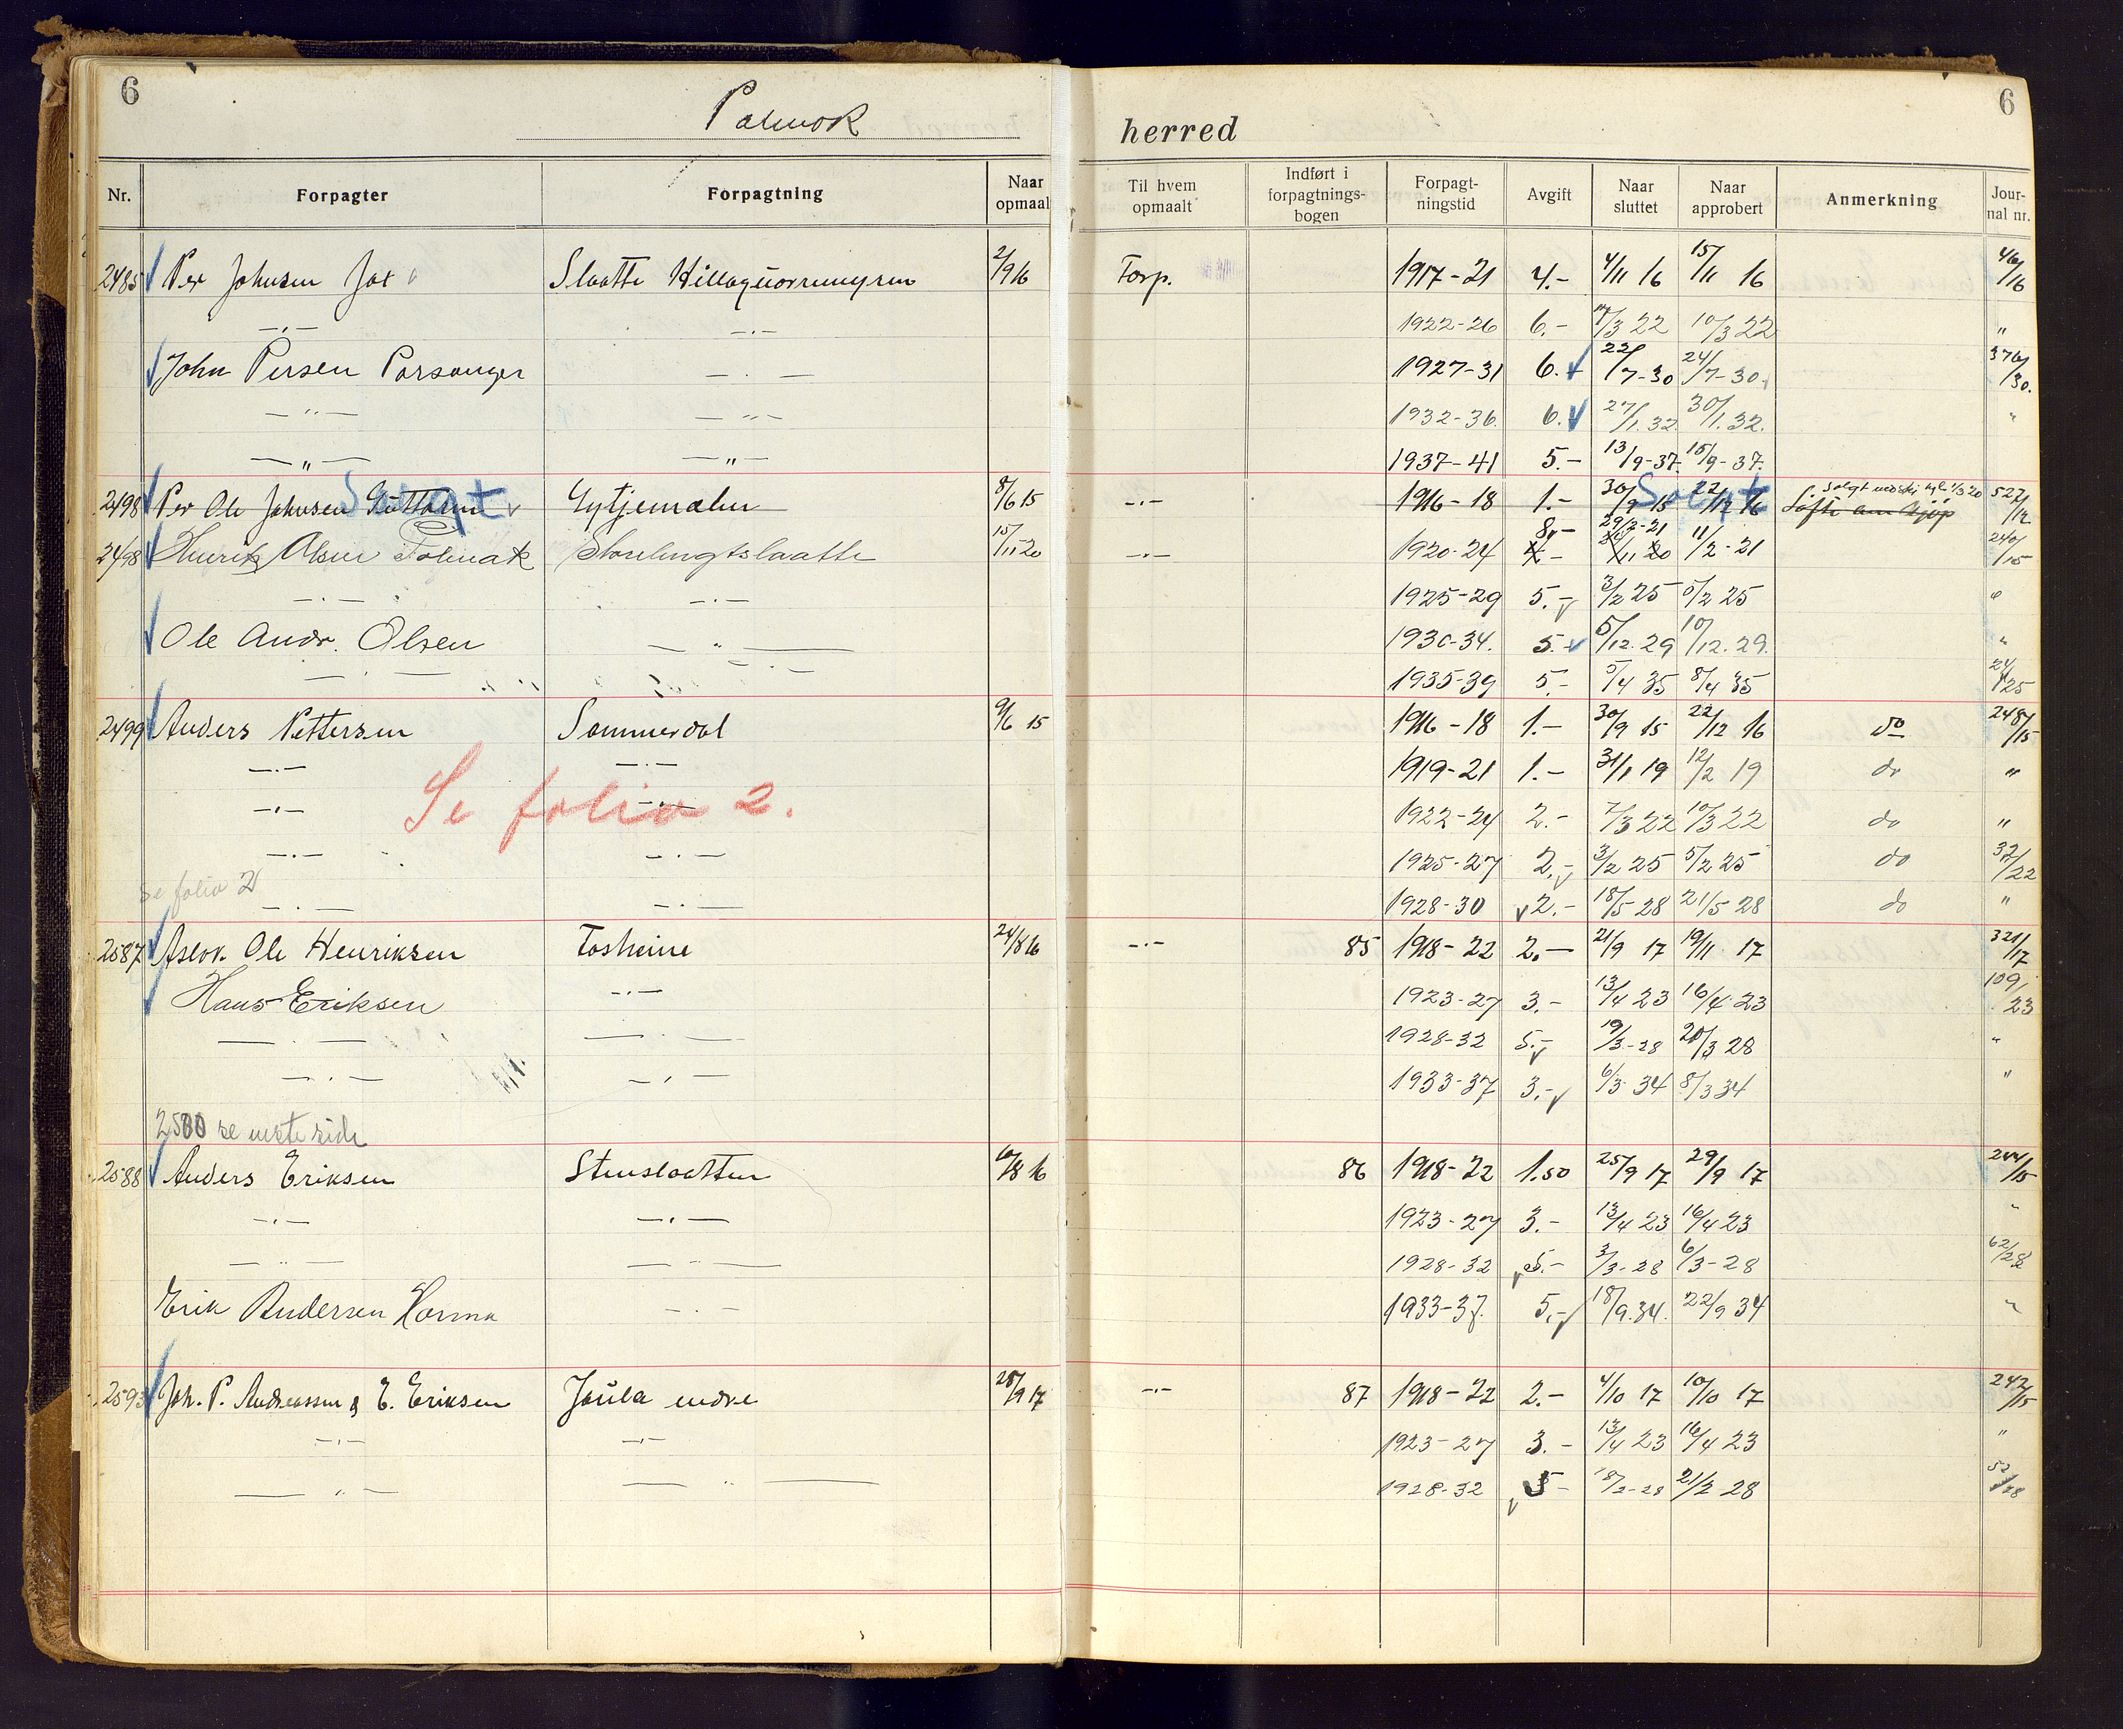 6
Polmak herred
6
Nr. Forpagter Forpagtning Naar opmaalt Til hvem opmaalt Indført i forpagtnings-bogen Forpagt-ningstid Avgift Naar sluttet Naar approbert Anmerkning Jour-nal nr.
2485 Per Johnsen Slaatte 2/9 16 Forp. 1917-21 4.- 4/11 16 15/11 16 46/16
—"— —"— 1922-26 6.- 7/3 22 10/3 22 "
John Persen Porsanger —"— 1927-31 6.- 22/7-30 24/7-30 376/30.
—"— —"— 1932-36. 6. 27/1.32. 30/1.32. "
—"— —"— 1937-41 5.- 13/9-37. 15/9-37.
2498 Per Ole Johnsen Guttorm Solgt Gytjemælen 8/6 15 —"— 1916-18 1.- 30/9 15 22/12 16 Solgt Løfte om kjøp 522/12
2498 Henrik Olsen Polmak Storelvgtslaatte 15/11 20 —"— 1920-24 8,- 29/2-21 11/2-21 240/15
—"— —"— 1925-29 5.- 3/2 25 5/2 25 "
Ole Andr. Olsen —"— 1930-34. 5.- 5/12.29 10/12.29. "
—"— —"— 1935-39 5.- 5/4 35 8/4 35 24/25
2499 Anders Pettersen Sommerdal 9/6 15 1916-18 1.- 30/9 15 22/12 16 do 248/15
—"— —"— 1919-21 1.- 31/1 19 12/2 19 do "
—"— Se folio 2. —"— 1922-24 2.- 7/3 22 10/3 22 do "
—"— —"— 1925-27 2.- 3/2 25 5/2 25 do 32/22
se folio 2
—"— —"— 1928-30 2.- 18/5 28 21/5 28 do "
2587 Aslak Ole Henriksen Tosheine 24/8 16 —"— 85 1918-22 2.- 21/9 17 19/11 17 321/17
Hans Eriksen —"— 1923-27 3.- 13/4 23 16/4 23 109/23
—"— —"— 1928-32 5.- 19/3-28 20/3 28 "
—"— —"— 1933-37 3.- 6/3 34 8/3 34 "
2500 se neste side
2588 Anders Eriksen Stenslaatten 10/8 16 86 1918-22 1.50 25/9 17 29/9 17 244/15
—"— —"— 1923-27 3.- 13/4 23 16/4 23 "
—"— —"— 1928-32 5.- 3/3-28 6/3-28 62/28
Erik Andersen Horma —"— 1933-37. 5.- 18/9.34. 22/9 34 "
2593 Joh. P. Andreassen & E. Eriksen Joula indre 28/9 17 —"— 87 1918-22 2.- 4/10 17 10/10 17 242/15
—"— —"— 1923-27 3.- 13/4 23 16/4 23 "
—"— —"— 1928-32 5- 18/2-28 21/2 28